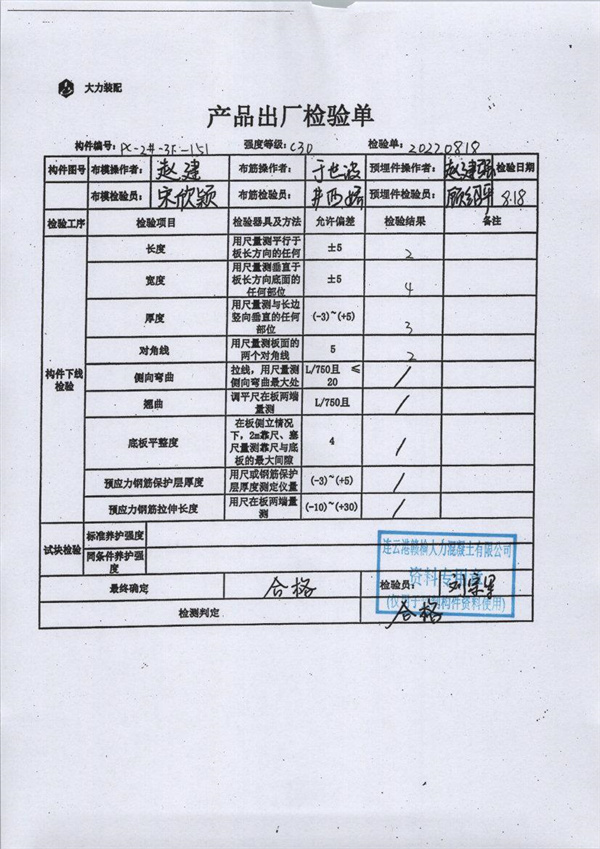 大力装配
产品出厂检验单
构件编号: PC-2#-3F-151 强度等级: C30 检验单: 20220818
构件图号 布模操作者: 赵建 布筋操作者: 于世波 预埋件操作者: 赵建强 检验日期
布模检验员: 宋欣颖 布筋检验员: 预埋件检验员: 8.18
检验工序 检验项目 检验器具及方法 允许偏差 检验结果 备注
构件下线检验
长度 用尺量测平行于板长方向的任何 ±5 2
宽度 用尺量测垂直于板长方向底面的任何部位 ±5 4
厚度 用尺量测与长边竖向垂直的任何部位 (-3)~(+5) 3
对角线 用尺量测板面的两个对角线 5 2
侧向弯曲 拉线，用尺量测侧向弯曲最大处 L/750且 ≤20 /
翘曲 调平尺在板两端量测 L/750且 /
底板平整度 在板侧立情况下，2m靠尺、塞尺量测靠尺与底板的最大间隙 4 /
预应力钢筋保护层厚度 用尺或钢筋保护层厚度测定仪量 (-3)~(+5) /
预应力钢筋拉伸长度 用尺在板两端量测 (-10)~(+30) /
试块检验 标准养护强度
同条件养护强度
最终确定 合格 检验员:
检测判定 合格
连云港赣榆大力混凝土有限公司
资料专用章
(仅用于 构件资料使用)